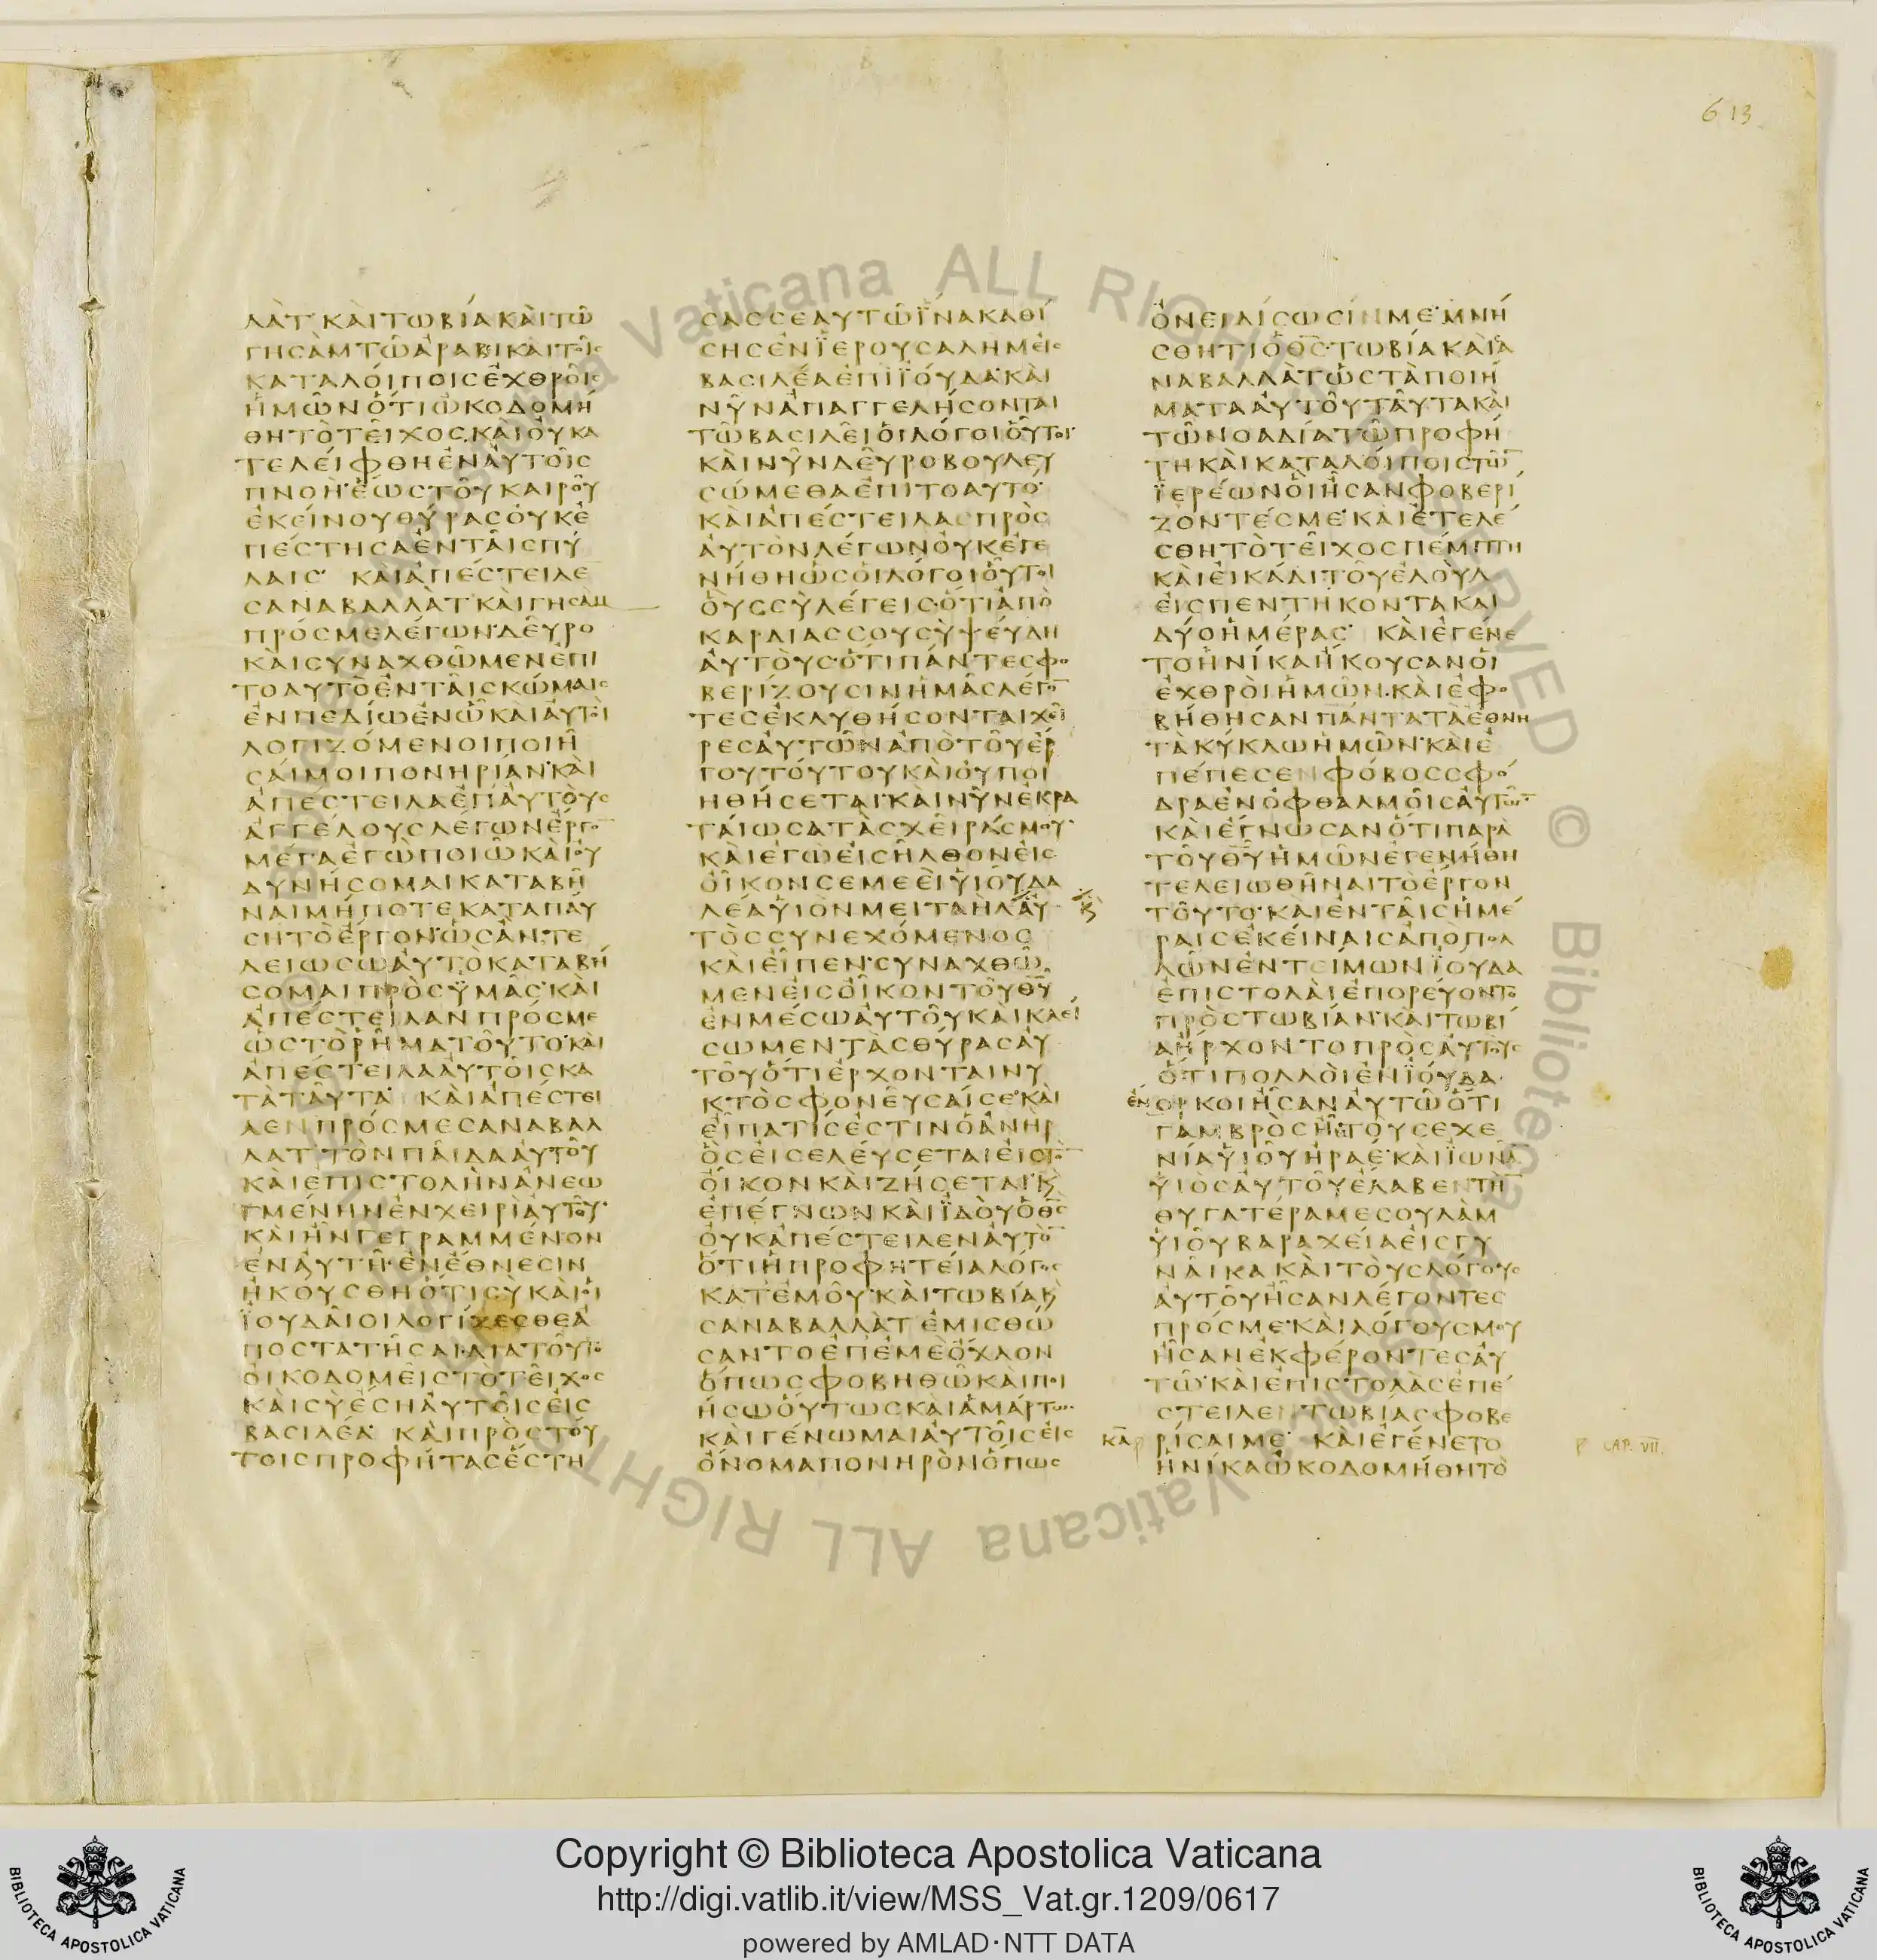 613
ΛΑΤ ΚΑΙ ΤΩΒΙΑ ΚΑΙ ΤΩ
ΓΗΣΑΜ ΤΩ ΑΡΑΒΙ ΚΑΙ ΤΟΙΣ
ΚΑΤΑΛΟΙΠΟΙΣ ΕΧΘΡΟΙΣ
ΗΜΩΝ ΟΤΙ ΩΚΟΔΟΜΗ
ΘΗ ΤΟ ΤΕΙΧΟΣ ΚΑΙ ΟΥ ΚΑ
ΤΕΛΕΙΦΘΗ ΕΝ ΑΥΤΟΙΣ
ΠΝΟΗ ΕΩΣ ΤΟΥ ΚΑΙΡΟΥ
ΕΚΕΙΝΟΥ ΘΥΡΑΣ ΟΥΚ Ε
ΠΕΣΤΗΣΑ ΕΝ ΤΑΙΣ ΠΥ
ΛΑΙΣ ΚΑΙ ΑΠΕΣΤΕΙΛΕ
ΣΑΝΑΒΑΛΛΑΤ ΚΑΙ ΓΗΣΑΜ
ΠΡΟΣ ΜΕ ΛΕΓΩΝ ΔΕΥΡΟ
ΚΑΙ ΣΥΝΑΧΘΩΜΕΝ ΕΠΙ
ΤΟ ΑΥΤΟ ΕΝ ΤΑΙΣ ΚΩΜΑΙΣ
ΕΝ ΠΕΔΙΩ ΕΝΩ ΚΑΙ ΑΥΤΟΙ
ΛΟΓΙΖΟΜΕΝΟΙ ΠΟΙΗ
ΣΑΙ ΜΟΙ ΠΟΝΗΡΙΑΝ ΚΑΙ
ΑΠΕΣΤΕΙΛΑ ΕΠ ΑΥΤΟΥΣ
ΑΓΓΕΛΟΥΣ ΛΕΓΩΝ ΕΡΓΟ̅
ΜΕΓΑ ΕΓΩ ΠΟΙΩ ΚΑΙ ΟΥ
ΔΥΝΗΣΟΜΑΙ ΚΑΤΑΒΗ
ΝΑΙ ΜΗΠΟΤΕ ΚΑΤΑΠΑΥ
ΣΗ ΤΟ ΕΡΓΟΝ ΩΣ ΑΝ ΤΕ
ΛΕΙΩΣΩ ΑΥΤΟ ΚΑΤΑΒΗ
ΣΟΜΑΙ ΠΡΟΣ ΥΜΑΣ ΚΑΙ
ΑΠΕΣΤΕΙΛΑΝ ΠΡΟΣ ΜΕ
ΩΣ ΤΟ ΡΗΜΑ ΤΟΥΤΟ ΚΑΙ
ΑΠΕΣΤΕΙΛΑ ΑΥΤΟΙΣ ΚΑ
ΤΑ ΤΑΥΤΑ ΚΑΙ ΑΠΕΣΤΕΙ
ΛΕΝ ΠΡΟΣ ΜΕ ΣΑΝΑΒΑΛ
ΛΑΤ ΤΟΝ ΠΑΙΔΑ ΑΥΤΟΥ
ΚΑΙ ΕΠΙΣΤΟΛΗΝ ΑΝΕΩ
ΓΜΕΝΗΝ ΕΝ ΧΕΙΡΙ ΑΥΤΟΥ
ΚΑΙ ΗΝ ΓΕΓΡΑΜΜΕΝΟΝ
ΕΝ ΑΥΤΗ ΕΝ ΕΘΝΕΣΙΝ
ΗΚΟΥΣΘΗ ΟΤΙ ΣΥ ΚΑΙ ΟΙ
ΙΟΥΔΑΙΟΙ ΛΟΓΙΖΕΣΘΕ Α
ΠΟΣΤΑΤΗΣΑΙ ΔΙΑ ΤΟΥΤΟ
ΟΙΚΟΔΟΜΕΙΣ ΤΟ ΤΕΙΧΟΣ
ΚΑΙ ΣΥ ΕΣΗ ΑΥΤΟΙΣ ΕΙΣ
ΒΑΣΙΛΕΑ ΚΑΙ ΠΡΟΣ ΤΟΥ
ΤΟΙΣ ΠΡΟΦΗΤΑΣ ΕΣΤΗ
ΣΑΣ ΣΕΑΥΤΩ ΙΝΑ ΚΑΘΙ
ΣΗΣ ΕΝ ΙΕΡΟΥΣΑΛΗΜ ΕΙΣ
ΒΑΣΙΛΕΑ ΕΠΙ ΙΟΥΔΑ ΚΑΙ
ΝΥΝ ΑΠΑΓΓΕΛΗΣΟΝΤΑΙ
ΤΩ ΒΑΣΙΛΕΙ ΟΙ ΛΟΓΟΙ ΟΥΤΟΙ
ΚΑΙ ΝΥΝ ΔΕΥΡΟ ΒΟΥΛΕΥ
ΣΩΜΕΘΑ ΕΠΙ ΤΟ ΑΥΤΟ
ΚΑΙ ΑΠΕΣΤΕΙΛΑ ΠΡΟΣ
ΑΥΤΟΝ ΛΕΓΩΝ ΟΥΚ ΕΓΕ
ΝΗΘΗ ΩΣ ΟΙ ΛΟΓΟΙ ΟΥΤΟΙ
ΟΥΣ ΣΥ ΛΕΓΕΙΣ ΟΤΙ ΑΠΟ
ΚΑΡΔΙΑΣ ΣΟΥ ΣΥ ΨΕΥΔΗ
ΑΥΤΟΥΣ ΟΤΙ ΠΑΝΤΕΣ ΦΟ
ΒΕΡΙΖΟΥΣΙΝ ΗΜΑΣ ΛΕΓΟ̅
ΤΕΣ ΕΚΛΥΘΗΣΟΝΤΑΙ ΧΕΙ
ΡΕΣ ΑΥΤΩΝ ΑΠΟ ΤΟΥ ΕΡ
ΓΟΥ ΤΟΥΤΟΥ ΚΑΙ ΟΥ ΠΟΙ
ΗΘΗΣΕΤΑΙ ΚΑΙ ΝΥΝ ΕΚΡΑ
ΤΑΙΩΣΑ ΤΑΣ ΧΕΙΡΑΣ ΜΟΥ
ΚΑΙ ΕΓΩ ΕΙΣΗΛΘΟΝ ΕΙΣ
ΟΙΚΟΝ ΣΕΜΕΕΙ ΥΙΟΥ ΔΑ
ΛΕΑ ΥΙΟΝ ΜΕΙΤΑΗΛ ΑΥ
ΤΟΣ ΣΥΝΕΧΟΜΕΝΟΣ
ΚΑΙ ΕΙΠΕΝ ΣΥΝΑΧΘΩ
ΜΕΝ ΕΙΣ ΟΙΚΟΝ ΤΟΥ Θ̅Υ̅
ΕΝ ΜΕΣΩ ΑΥΤΟΥ ΚΑΙ ΚΛΕΙ
ΣΩΜΕΝ ΤΑΣ ΘΥΡΑΣ ΑΥ
ΤΟΥ ΟΤΙ ΕΡΧΟΝΤΑΙ ΝΥ
ΚΤΟΣ ΦΟΝΕΥΣΑΙ ΣΕ ΚΑΙ
ΕΙΠΑ ΤΙΣ ΕΣΤΙΝ Ο ΑΝΗΡ
ΟΣ ΕΙΣΕΛΕΥΣΕΤΑΙ ΕΙΣ ΤΟ̅
ΟΙΚΟΝ ΚΑΙ ΖΗΣΕΤΑΙ Κ̣
ΕΠΕΓΝΩΝ ΚΑΙ ΙΔΟΥ Ο Θ̅Σ̅
ΟΥΚ ΑΠΕΣΤΕΙΛΕΝ ΑΥΤΟ̅
ΟΤΙ Η ΠΡΟΦΗΤΕΙΑ ΛΟΓΟΣ
ΚΑΤ ΕΜΟΥ ΚΑΙ ΤΩΒΙΑ Κ
ΣΑΝΑΒΑΛΛΑΤ ΕΜΙΣΘΩ
ΣΑΝΤΟ ΕΠ ΕΜΕ ΟΧΛΟΝ
ΟΠΩΣ ΦΟΒΗΘΩ ΚΑΙ ΠΟΙ
ΗΣΩ ΟΥΤΩΣ ΚΑΙ ΑΜΑΡΤΩ
ΚΑΙ ΓΕΝΩΜΑΙ ΑΥΤΟΙΣ ΕΙΣ
ΟΝΟΜΑ ΠΟΝΗΡΟΝ ΟΠΩΣ
ΟΝΕΙΔΙΣΩΣΙΝ ΜΕ ΜΝΗ
ΣΘΗΤΙ Ο Θ̅Σ̅ ΤΩΒΙΑ ΚΑΙ ΣΑ
ΝΑΒΑΛΛΑΤ ΩΣ ΤΑ ΠΟΙΗ
ΜΑΤΑ ΑΥΤΟΥ ΤΑΥΤΑ ΚΑΙ
ΤΩ ΝΟΑΔΙΑ ΤΩ ΠΡΟΦΗ
ΤΗ ΚΑΙ ΚΑΤΑΛΟΙΠΟΙΣ ΤΩ̅
ΙΕΡΕΩΝ ΟΙ ΗΣΑΝ ΦΟΒΕΡΙ
ΖΟΝΤΕΣ ΜΕ ΚΑΙ ΕΤΕΛΕ
ΣΘΗ ΤΟ ΤΕΙΧΟΣ ΠΕΜΠΤΗ
ΚΑΙ ΕΙΚΑΔΙ ΤΟΥ ΕΛΟΥΛ
ΕΙΣ ΠΕΝΤΗΚΟΝΤΑ ΚΑΙ
ΔΥΟ ΗΜΕΡΑΣ ΚΑΙ ΕΓΕΝΕ
ΤΟ ΗΝΙΚΑ ΗΚΟΥΣΑΝ ΟΙ
ΕΧΘΡΟΙ ΗΜΩΝ ΚΑΙ ΕΦΟ
ΒΗΘΗΣΑΝ ΠΑΝΤΑ ΤΑ ΕΘΝΗ
ΤΑ ΚΥΚΛΩ ΗΜΩΝ ΚΑΙ Ε
ΠΕΠΕΣΕΝ ΦΟΒΟΣ ΣΦΟ
ΔΡΑ ΕΝ ΟΦΘΑΛΜΟΙΣ ΑΥΤΩ̅
ΚΑΙ ΕΓΝΩΣΑΝ ΟΤΙ ΠΑΡΑ
ΤΟΥ Θ̅Υ̅ ΗΜΩΝ ΕΓΕΝΗΘΗ
ΤΕΛΕΙΩΘΗΝΑΙ ΤΟ ΕΡΓΟΝ
ΤΟΥΤΟ ΚΑΙ ΕΝ ΤΑΙΣ ΗΜΕ
ΡΑΙΣ ΕΚΕΙΝΑΙΣ ΑΠΟ ΠΟΛ
ΛΩΝ ΕΝΤΕΙΜΩΝ ΙΟΥΔΑ
ΕΠΙΣΤΟΛΑΙ ΕΠΟΡΕΥΟΝΤΟ
ΠΡΟΣ ΤΩΒΙΑΝ ΚΑΙ ΤΩΒΙ
Α ΗΡΧΟΝΤΟ ΠΡΟΣ ΑΥΤΟΥΣ
ΟΤΙ ΠΟΛΛΟΙ ΕΝ ΙΟΥΔΑ
ΕΝΟΡΚΟΙ ΗΣΑΝ ΑΥΤΩ ΟΤΙ
ΓΑΜΒΡΟΣ ΗΝ ΤΟΥ ΣΕΧΕ
ΝΙΑ ΥΙΟΥ ΗΡΑΕ ΚΑΙ ΙΩΝΑ
ΥΙΟΣ ΑΥΤΟΥ ΕΛΑΒΕΝ ΤΗ̅
ΘΥΓΑΤΕΡΑ ΜΕΣΟΥΛΑΜ
ΥΙΟΥ ΒΑΡΑΧΕΙΑ ΕΙΣ ΓΥ
ΝΑΙΚΑ ΚΑΙ ΤΟΥΣ ΛΟΓΟΥΣ
ΑΥΤΟΥ ΗΣΑΝ ΛΕΓΟΝΤΕΣ
ΠΡΟΣ ΜΕ ΚΑΙ ΛΟΓΟΥΣ ΜΟΥ
ΗΣΑΝ ΕΚΦΕΡΟΝΤΕΣ ΑΥ
ΤΩ ΚΑΙ ΕΠΙΣΤΟΛΑΣ ΕΠΕ
ΣΤΕΙΛΕΝ ΤΩΒΙΑΣ ΦΟΒΕ
ΡΙΣΑΙ ΜΕ ΚΑΙ ΕΓΕΝΕΤΟ
ΗΝΙΚΑ ΩΚΟΔΟΜΗΘΗ ΤΟ
CAP. VII.
Copyright © Biblioteca Apostolica Vaticana
http://digi.vatlib.it/view/MSS_Vat.gr.1209/0617
powered by AMLAD·NTT DATA
BIBLIOTECA APOSTOLICA VATICANA
BIBLIOTECA APOSTOLICA VATICANA